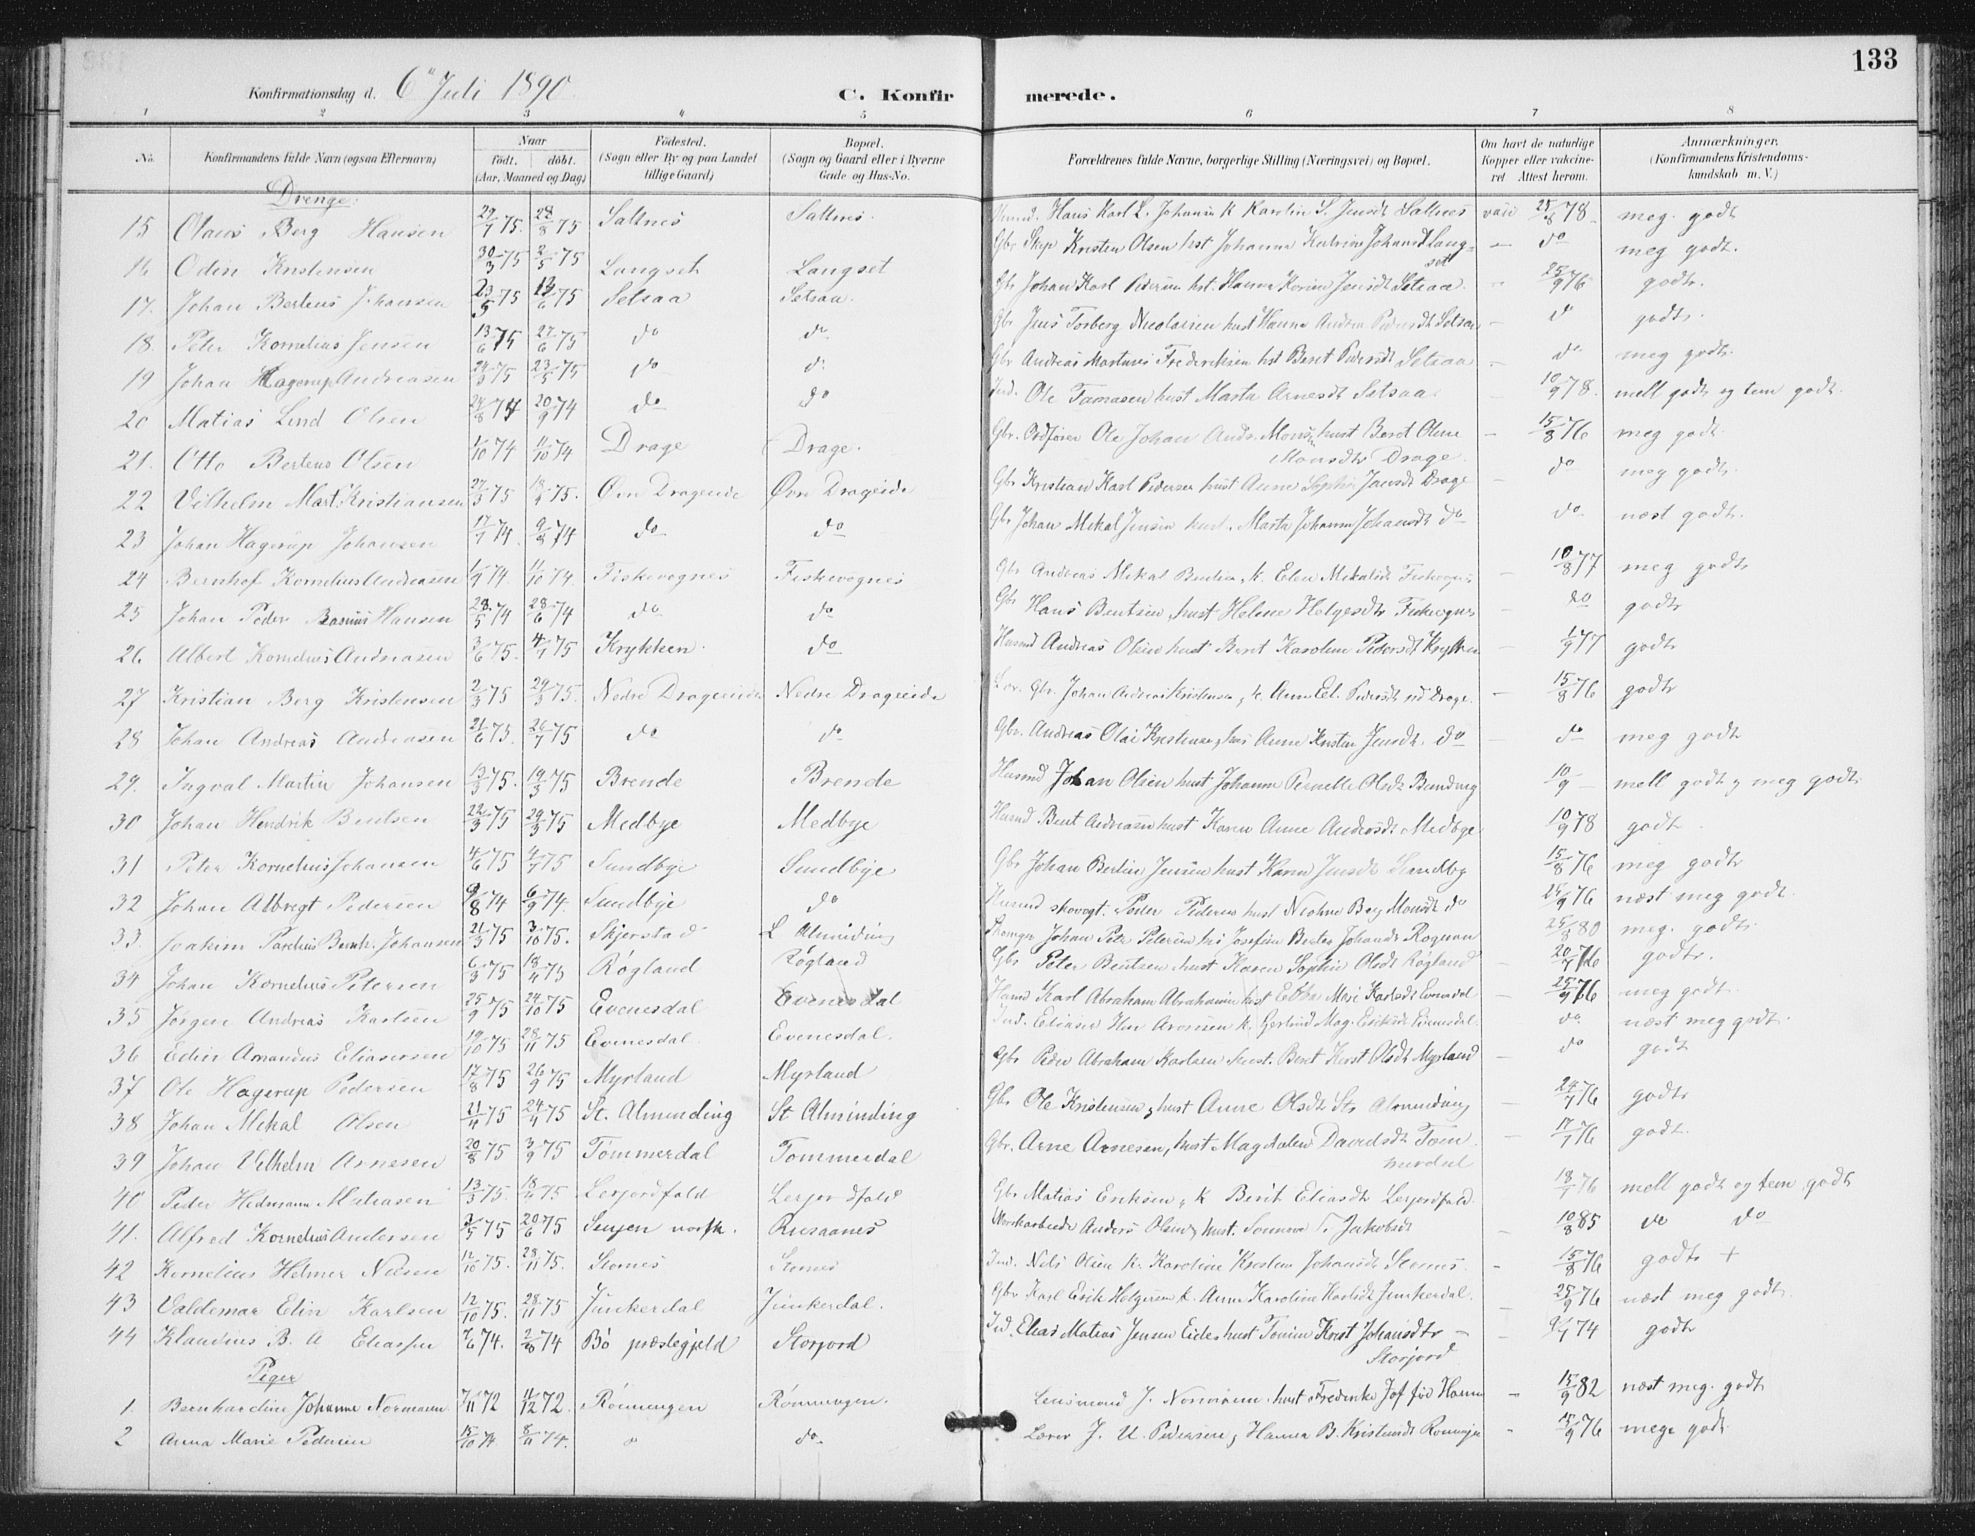 133
Konfirmationsdag d. 6 Juli 1890.
C. Konfirmerede.
1 2 3 4 5 6 7 8
No. Konfirmandens fulde Navn (ogsaa Efternavn) Naar født. døbt. (Aar, Maaned og Dag) Fødested. (Sogn eller By og paa Landet tillige Gaard) Bopæl. (Sogn og Gaard eller i Byerne Gade og Hus-No. Forældrenes fulde Navne, borgerlige Stilling (Næringsvei) og Bopæl. Om havt de naturlige Kopper eller vakcineret Attest herom. Anmærkninger. (Konfirmandens Kristendomskundskab m. V.)
Drenge:
15 Olaus Berg Hansen 29/7 75. 28/8 75 Saltnes Saltnes. Hans Karl L. Johanis K. Karolin S. Jensdt Saltnes vaic 25/8 78 meg. godt
16 Odin Kristensen 30/3 75 2/5 75 Langset Langset Gbr. Skip Kristen Olsen hst Johanna Katrine Johansdt Langset — do meg godt.
17. Johan Berteus Johansen 23/5 75 13/6 75 Setsaa Setsaa. Gbr Johan Karl Pedersen hst. Hanna Korine Jensdt Setsaa 25/9 76 godt.
18 Peter Kornelius Jensen 13/6 75 27/6 75 do do. Gbr Jens Torberg Nicolaisen hust Hanna Andrea Pedersdt Setsaa — do godt.
19 Johan Hagerup Andreasen 24/3 75 23/5 75 do do. Gbr Andreas Martinus Frederiksen hst Beret Pedersdt Setsaa — do meg godt
20 Matias Lund Olsen 24/8 74 20/9 74 do do Ind. Ole Tomasen hust Marta Arnesdt Setsaa. 10/9 78. mell godt og tem godt.
21. Otto Berteus Olsen 1/10 74 11/10 74 Drage Drage. Gbr. Ordfører Ole Johan Andr. Mons hust Beret Oline Monsdtr Drage — 15/8 76 meg godt.
22 Vilhelm Mart. Kristiansen 27/3 75 18/4 75. Øvr Drageide Øvr Drageide Gbr Kristian Karl Pedersen hust Anne Sophie Jansdt Drage do meg godt.
23 Johan Hagerup Johansen 17/7 74. 9/8 74 do do Gbr Johan Mikal Jensen hust. Marta Johanna Johansdt do do næst godt.
24 Bernhof Kornelius Andreasen 1/9 74. 11/10 74. Fiskevognes Fiskevognes Gbr Andreas Mikal Bentsen, k. Elen Mikalsdt Fiskvognes — 10/8 77 meg godt
25 Johan Peder Rasmus Hansen 28/5 74 28/6 74 do do Gbr Hans Bentsen, hust Helene Helgesdtr Fiskvognes — do godt
26 Albert Kornelius Andreasen 3/6 75. 4/7 75 Krykken do Husmd Andreas Olsen hust Beret Karoline Pedersdt Krykken — 1/9 77 godt
27 Kristian Berg Kristensen 2/3 75 29/3 75. Nedre Drageeide Nedre Drageide Gbr. Johan Andreas Kristensen, k. Anne El. Pedersdt nd Drage. — 15/8 76 godt
28 Johan Andreas Andreasen 21/6 75. 26/7 75 do do Gbr. Andreas Olai Kristensen, hus Anne Kirsten Jensdt. do — do meg godt
29. Ingval Martin Johansen 13/3 75. 19/3 75 Brende Brende Husmd Johan Olsen hust Johanna Pernelle Olsdt — 10/9 — mell godt og meg godt.
30 Johan Hendrik Bentsen 22/3 75 29/3 75 Medbye Medbye Husmd Bent Andreasen hust Karen Anne Andersdt Medbye 10/9 78 godt.
31 Peter Kornelius Johansen 4/6 75 4/7 75 Sundbye Sundbye Gbr Johan Bertin Jensen hust Karen Jensdt Sundby 15/8 76 meg godt
32 Johan Albregt Pedersen 9/8 74 6/9 74. Sundbye do Husmd skovogt. Peder Pedersen hust Nicoline Berg Monsdt do 25/9 76 næst meg godt.
33. Joakim Parelius Bernt. Johansen 21/3 75 3/10 75. Skjerstad L Almending Johan Petr Petersen hs Josefine Bertea Johansdt Rognan 25/8 80 meg. godt.
34 Johan Kornelius Petersen 6/3 75 18/4 75 Røgland Røgland Gbr Peter Bentsen, hust Karen Sophie Olsdt Røgland — 20/7 76 godt.
35 Jørgen Andreas Karlsen 25/9 75 24/10 75 Evenesdal Evenesdal Husmd Karl Abraham Abrahamsen hust Ebba Marie Karlsdt Evensdal 25/9 76 meg godt.
36 Edin Amandus Eliasersen 19/10 75 28/11 75 Evenesdal. Evenesdal. Ind. Eliaser Aronsen k. Gjertrud Mag. Eriksdt Evensdal. do næst meg godt.
37 Ole Hagerup Pedersen 17/8 75 26/9 75 Myrland Myrland Gbr Peder Abraham Karlsen hust. Beret Kirst Olsdt Myrland — do godt
38 Johan Mikal Olsen 21/4 75 24/4 75 St. Almending St Alminding Gbr Ole Kristensen, hust Anne Olsdt Str Almending — 24/7 76 godt
39 Johan Vilhelm Arnesen 20/8 75 3/9 75 Tommerdal Tommerdal Gbr. Arne Arnesen, hust Magdalen Davidsdt Tommerdal — 17/7 76 godt.
40 Peder Hedmann Matiasen 13/3 75. 18/4 75 Lerjordfald Lerjordfald Gbr Matias Eriksen, k Berit Eliasdt Lerjordfald. 18/7 76 mell godt og tem godt
41. Alfred Kornelius Andersen 3/5 75 20/6 75 Senjen norsk. Rusaanes Værkarbeide Anders Olsen, hust. Jakobsdt — 10/8 85 do do
42 Kornelius Helmer Nilsen 12/10 75. 28/11 75. Stornes Stornes Ind. Nils Olsen k. Karoline Kirsten Johansdt Stornes. — 15/8 76 godt +
43 Valdemar Elin Karlsen 12/10 75. 28/11 75 Junkerdal Junkerdal. Gbr Karl Erik Holgersen k. Anne Karoline Karlsdt Junkerdal. — 25/9 76 næst meg godt.
44 Klaudius B. A Eliassen 7/6 74. 2/8 74 Bø præstegjeld Storjord Ind. Elias Matias Jensen Eide hust Tomine Kirst Johansdtr — Storjord 9/7 74 godt
Piger
1. Bernhardine Johanna Normann 7/11 72 11/12 72. Rønningen Rønningen. Lensmand J. Normann. hust Fredrikke Jof fød Hansen — 15/9 82 næst meg. godt
2 Anna Marie Pedersen 15/10 74 8/11 74. " do Lærer J. U. Pedersen, Hanna B. Kristensdt Rønningen — 15/9 76 meg. godt